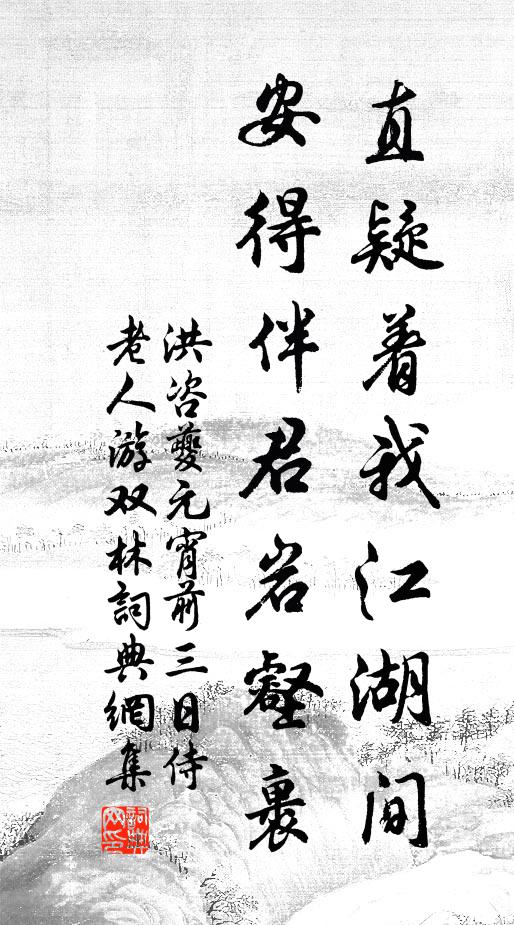 直疑着我江湖间
安得伴君岩壑裹
洪咨夔元宵前三日侍
老人游双林詞典網集